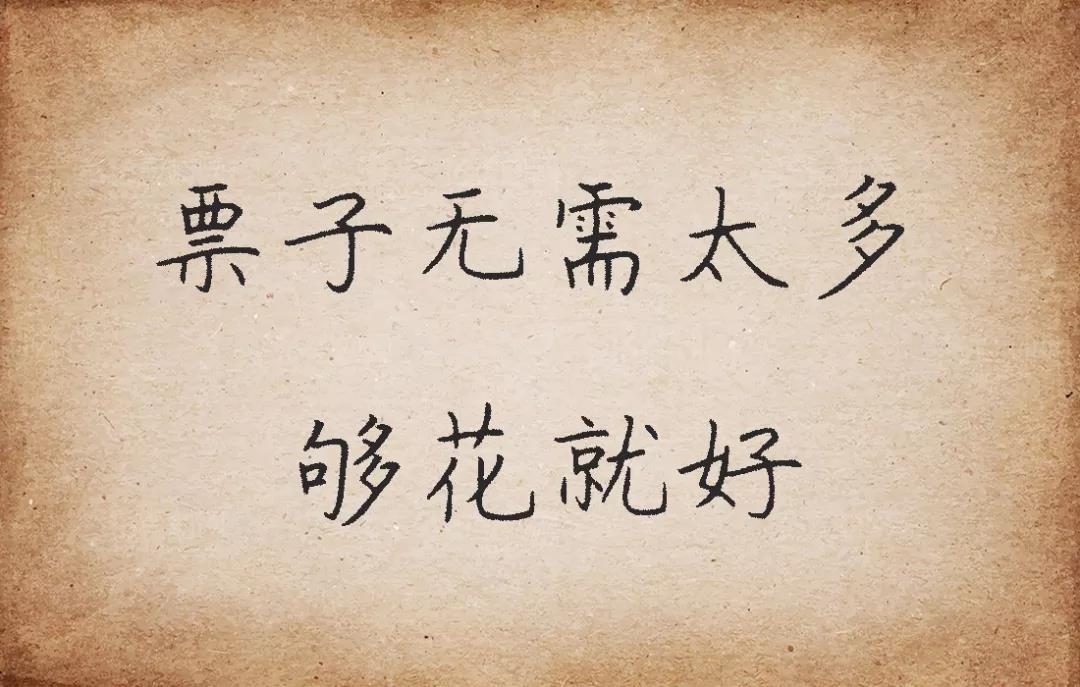 票子无需太多
够花就好